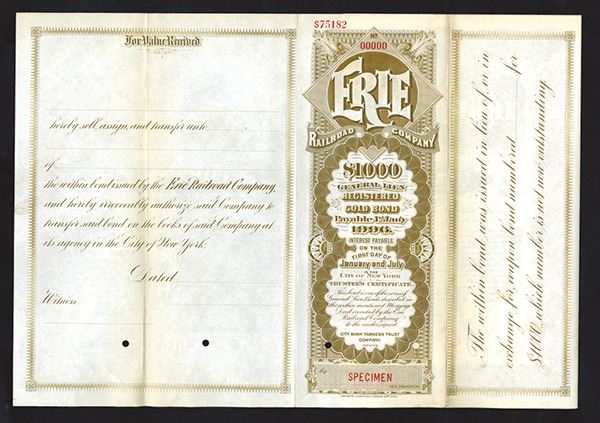 For Value Received
hereby sell, assign, and transfer unto
of
the within bond issued by the Erie Railroad Company,
and hereby irrevocably authorize said Company to
transfer said bond on the books of said Company at
its agency in the City of New York.
Dated
Witness
S75182
No
00000
ERIE
RAILROAD COMPANY
$1000
GENERAL LIEN
REGISTERED
GOLD BOND
Payable 1st July
1996.
INTEREST PAYABLE
ON THE
FIRST DAY OF
January and July
IN THE
CITY OF NEW YORK
TRUSTEE'S CERTIFICATE.
This bond is one of the series of
General Lien Bonds described in
the within mentioned Mortgage
Deed executed by the Erie
Railroad Company
to the undersigned
CITY BANK FARMERS TRUST
COMPANY
By
SPECIMEN
The within bond was issued in lieu of, or in
exchange for, coupon bond numbered for
$1000, which number is not now outstanding.